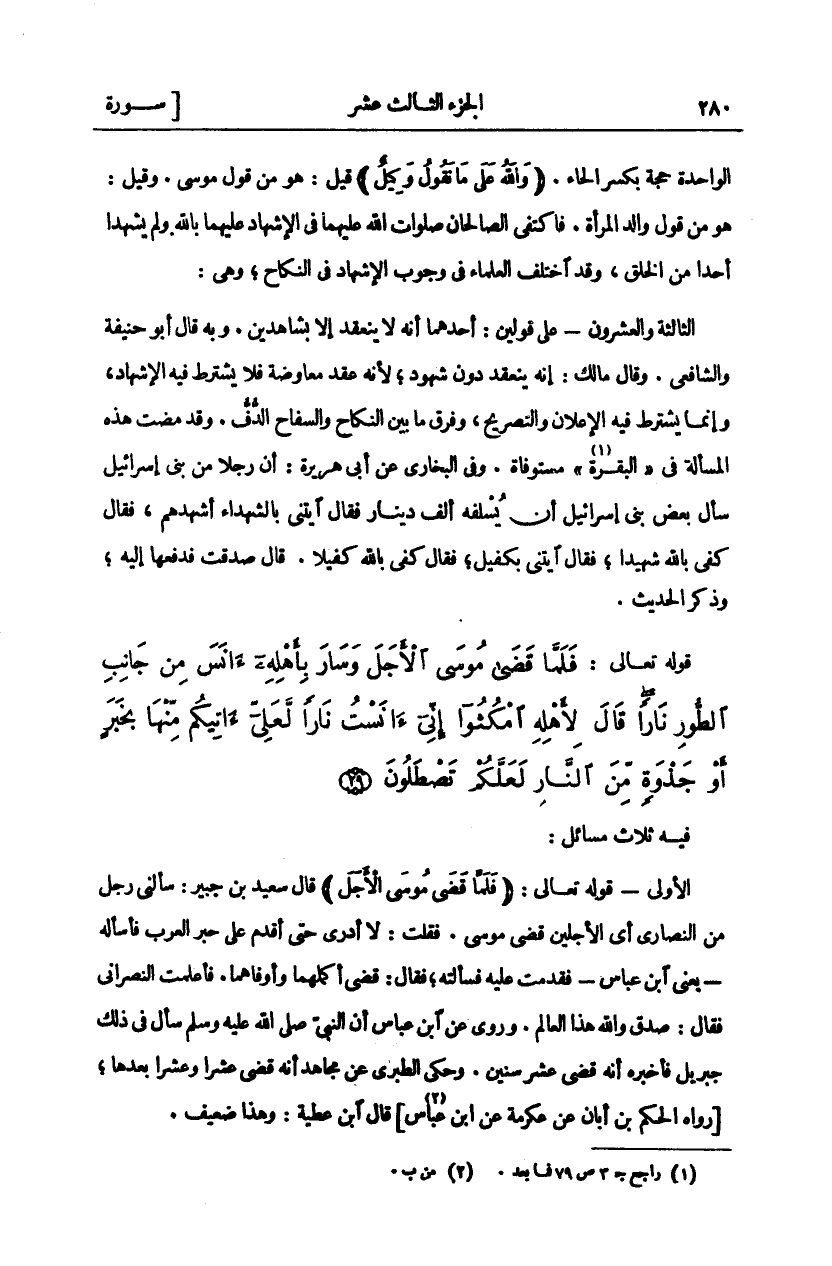 ٢٨٠ الجزء الثالث عشر [ ســورة
الواحدة حجة بكسر الحاء . ﴿ وَاللهُ عَلَى مَا نَقُولُ وَكِيلٌ ﴾ قيل : هو من قول موسى . وقيل :
هو من قول والد المرأة . فاكتفى الصالحان صلوات الله عليهما فى الإشهاد عليهما بالله ولم يشهدا
أحدا من الخلق ، وقد آختلف العلماء فى وجوب الإشهاد فى النكاح ؛ وهى :
الثالثة والعشرون — على قولين : أحدهما أنه لا ينعقد إلا بشاهدين . وبه قال أبو حنيفة
والشافعى . وقال مالك : إنه ينعقد دون شهود ؛ لأنه عقد معاوضة فلا يشترط فيه الإشهاد،
وإنمـا يشترط فيه الإعلان والتصريح، وفرق ما بين النكاح والسفاح الدُّفُّ . وقد مضت هذه
المسألة فى « البقـرة » (١) مستوفاة . وفى البخارى عن أبى هريرة : أن رجلا من بنى إسرائيل
سأل بعض بنى إسرائيل أن يُسْلفه ألف دينـار فقال آيتنى بالشهداء أشهدهم ، فقال
كفى بالله شهيدا ؛ فقال آيتنى بكفيل؛ فقال كفى بالله كفيلا . قال صدقت فدفعها إليه ؛
وذكر الحديث .
قوله تعـالى : فَلَمَّا قَضَىٰ مُوسَى ٱلْأَجَلَ وَسَارَ بِأَهْلِهِۦٓ ءَانَسَ مِن جَانِبِ
ٱلطُّورِ نَارًاۖ قَالَ لِأَهْلِهِ ٱمْكُثُوٓا إِنِّىٓ ءَانَسْتُ نَارًا لَّعَلِّىٓ ءَاتِيكُم مِّنْهَا بِخَبَرٍ
أَوْ جَذْوَةٍ مِّنَ ٱلنَّـارِ لَعَلَّكُمْ تَصْطَلُونَ ﴿٢٩﴾
فيـه ثلاث مسائل :
الأولى — قوله تعـالى : ﴿ فَلَمَّا قَضَى مُوسَى الْأَجَلَ ﴾ قال سعيد بن جبير : سألنى رجل
من النصارى أى الأجلين قضى موسى . فقلت : لا أدرى حتى أقدم على حبر العرب فأسأله
— يعنى آبن عباس — فقدمت عليه فسألته ؛ فقال : قضى أكملهما وأوفاهما. فأعلمت النصرانى
فقال : صدق والله هذا العالم . وروى عن آبن عباس أن النبىّ صلى الله عليه وسلم سأل فى ذلك
جبريل فأخبره أنه قضى عشر سنين . وحكى الطبرى عن مجاهد أنه قضى عشرا وعشرا بعدها ؛
[رواه الحكم بن أبان عن عكرمة عن ابن عباس] (٢) قال آبن عطية : وهذا ضعيف .
(١) راجع جـ ٣ ص ٧٩ فـا بعد . (٢) من ب .